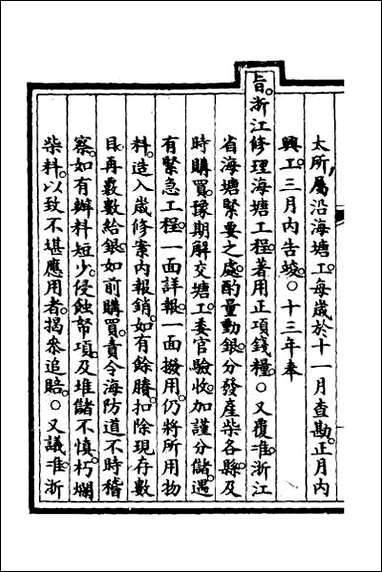 太所屬沿海塘工。每歲於十一月查勘。正月內
興工。三月內告竣。○十三年奉
旨。浙江修理海塘工程。著用正項錢糧。○又覆准。浙江
省海塘緊要之處。酌量動銀。分發產柴各縣。及
時購買。豫期解交塘工。委官驗收。加謹分儲。遇
有緊急工程。一面詳報。一面撥用。仍將所用物
料。造入歲修案內報銷。如有餘賸。扣除現存數
目。再覈數給銀。如前購買。責令海防道不時稽
察。如有辦料短少。侵蝕帑項。及堆儲不慎。朽爛
柴料。以致不堪應用者。揭參追賠。○又議准。浙